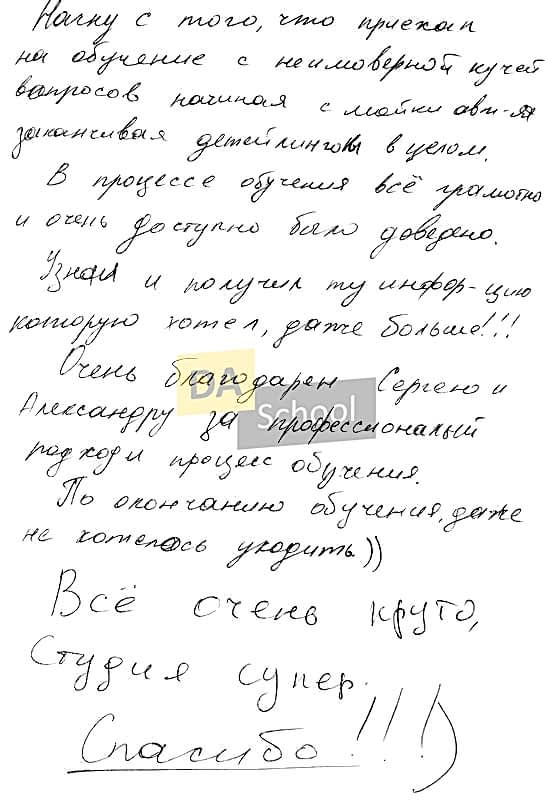 Начну с того, что приехал
на обучение с неимоверной кучей
вопросов начиная с мойки авт-ля
заканчивая детейлингом в целом.
В процессе обучения всё грамотно
и очень доступно было доведено.
Узнал и получил ту инфор-цию
которую хотел, даже больше!!!
Очень благодарен Сергею и
Александру за профессиональный
подход и процесс обучения.
По окончанию обучения, даже
не хотелось уходить))
Всё очень круто,
Студия супер.
Спасибо!!!)
DA
School